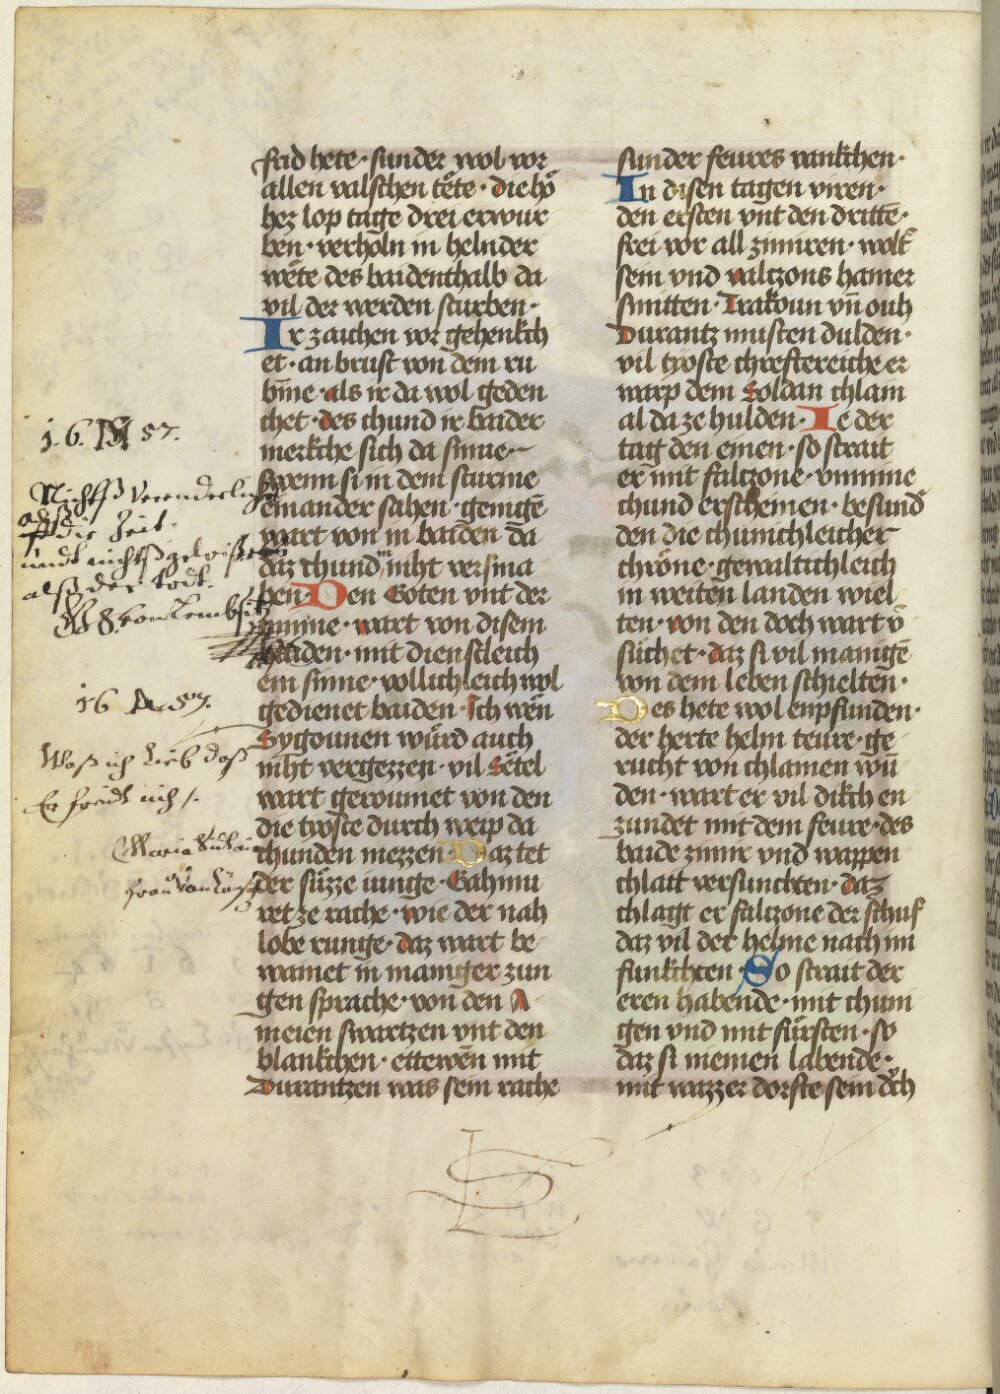 frid hete · sunder wol vor
allen valschen tete · die hö
hez lop tage drei erwur
ben · verholn in helnder
wete des baidenthalb da
vil der werden sturben ·
Ir zaichen vor gehenkch
et · an brust von dem ru
bine · als ir da wol geden
chet · des chund ir baider
merkche sich da sinne ·
swenn si in dem sturme
einander sahen · genigē
wart von in baiden da
daz chund niht versma
hen · Den Goten vnt der
minne · wart von disem
baiden · mit dienstleich
em sinne · vollichleich wol
gedienet baiden · Ich wēn
Sygounen würd auch
niht vergezzen · vil Sētel
wart geroumet von den
die tyoste durch weip da
chunden mezzen · Daz tet
der süzze iunge · Gahmu
ret ze rache · wie der nah
lobe runge · daz wart be
wainet in maniger zun
gen sprache · von den A
meien swartzen vnt den
blankchen · ettewēn mit
Durantzen was sein rache
16 57.
Nichtß Verenderlicher
alß die Zeit.
undt nichtß gewißers
alß der Todt.
16 57.
Waß ich Lieb daß
sunder feures wankchen ·
In disen tagen viren ·
den ersten vnt den drittē ·
frei vor all zimiren · wolt
sein vnd valtzons hamer
smitten · Trakoun vn̄ ouh
Durantz musten dulden ·
vil tyoste chreftereiche er
warp dem Soldan chlam
al da ze hulden · Ie der
tag den einen · so strait
er mit faltzone · vnminne
chund erscheinen · besund
den die chumchleicher
chröne · gewaltichleich
in weiten landen wiel
ten · von den doch wart v̄
süchet · daz si vil manigē
von dem leben schielten ·
Des hete wol enpfunden ·
der herte helm teure · ge
rucht von chlamen wū
den · wart er vil dikch en
zundet mit dem feure · des
baide zimir vnd wappen
chlait versunchten · daz
chlagt er faltzone der schuf
daz vil der helme nach im
funkchten · So strait der
eren habende · mit chuni
gen vnd mit fürsten · so
daz si niemen labende ·
mit wazzer dorste sein doch